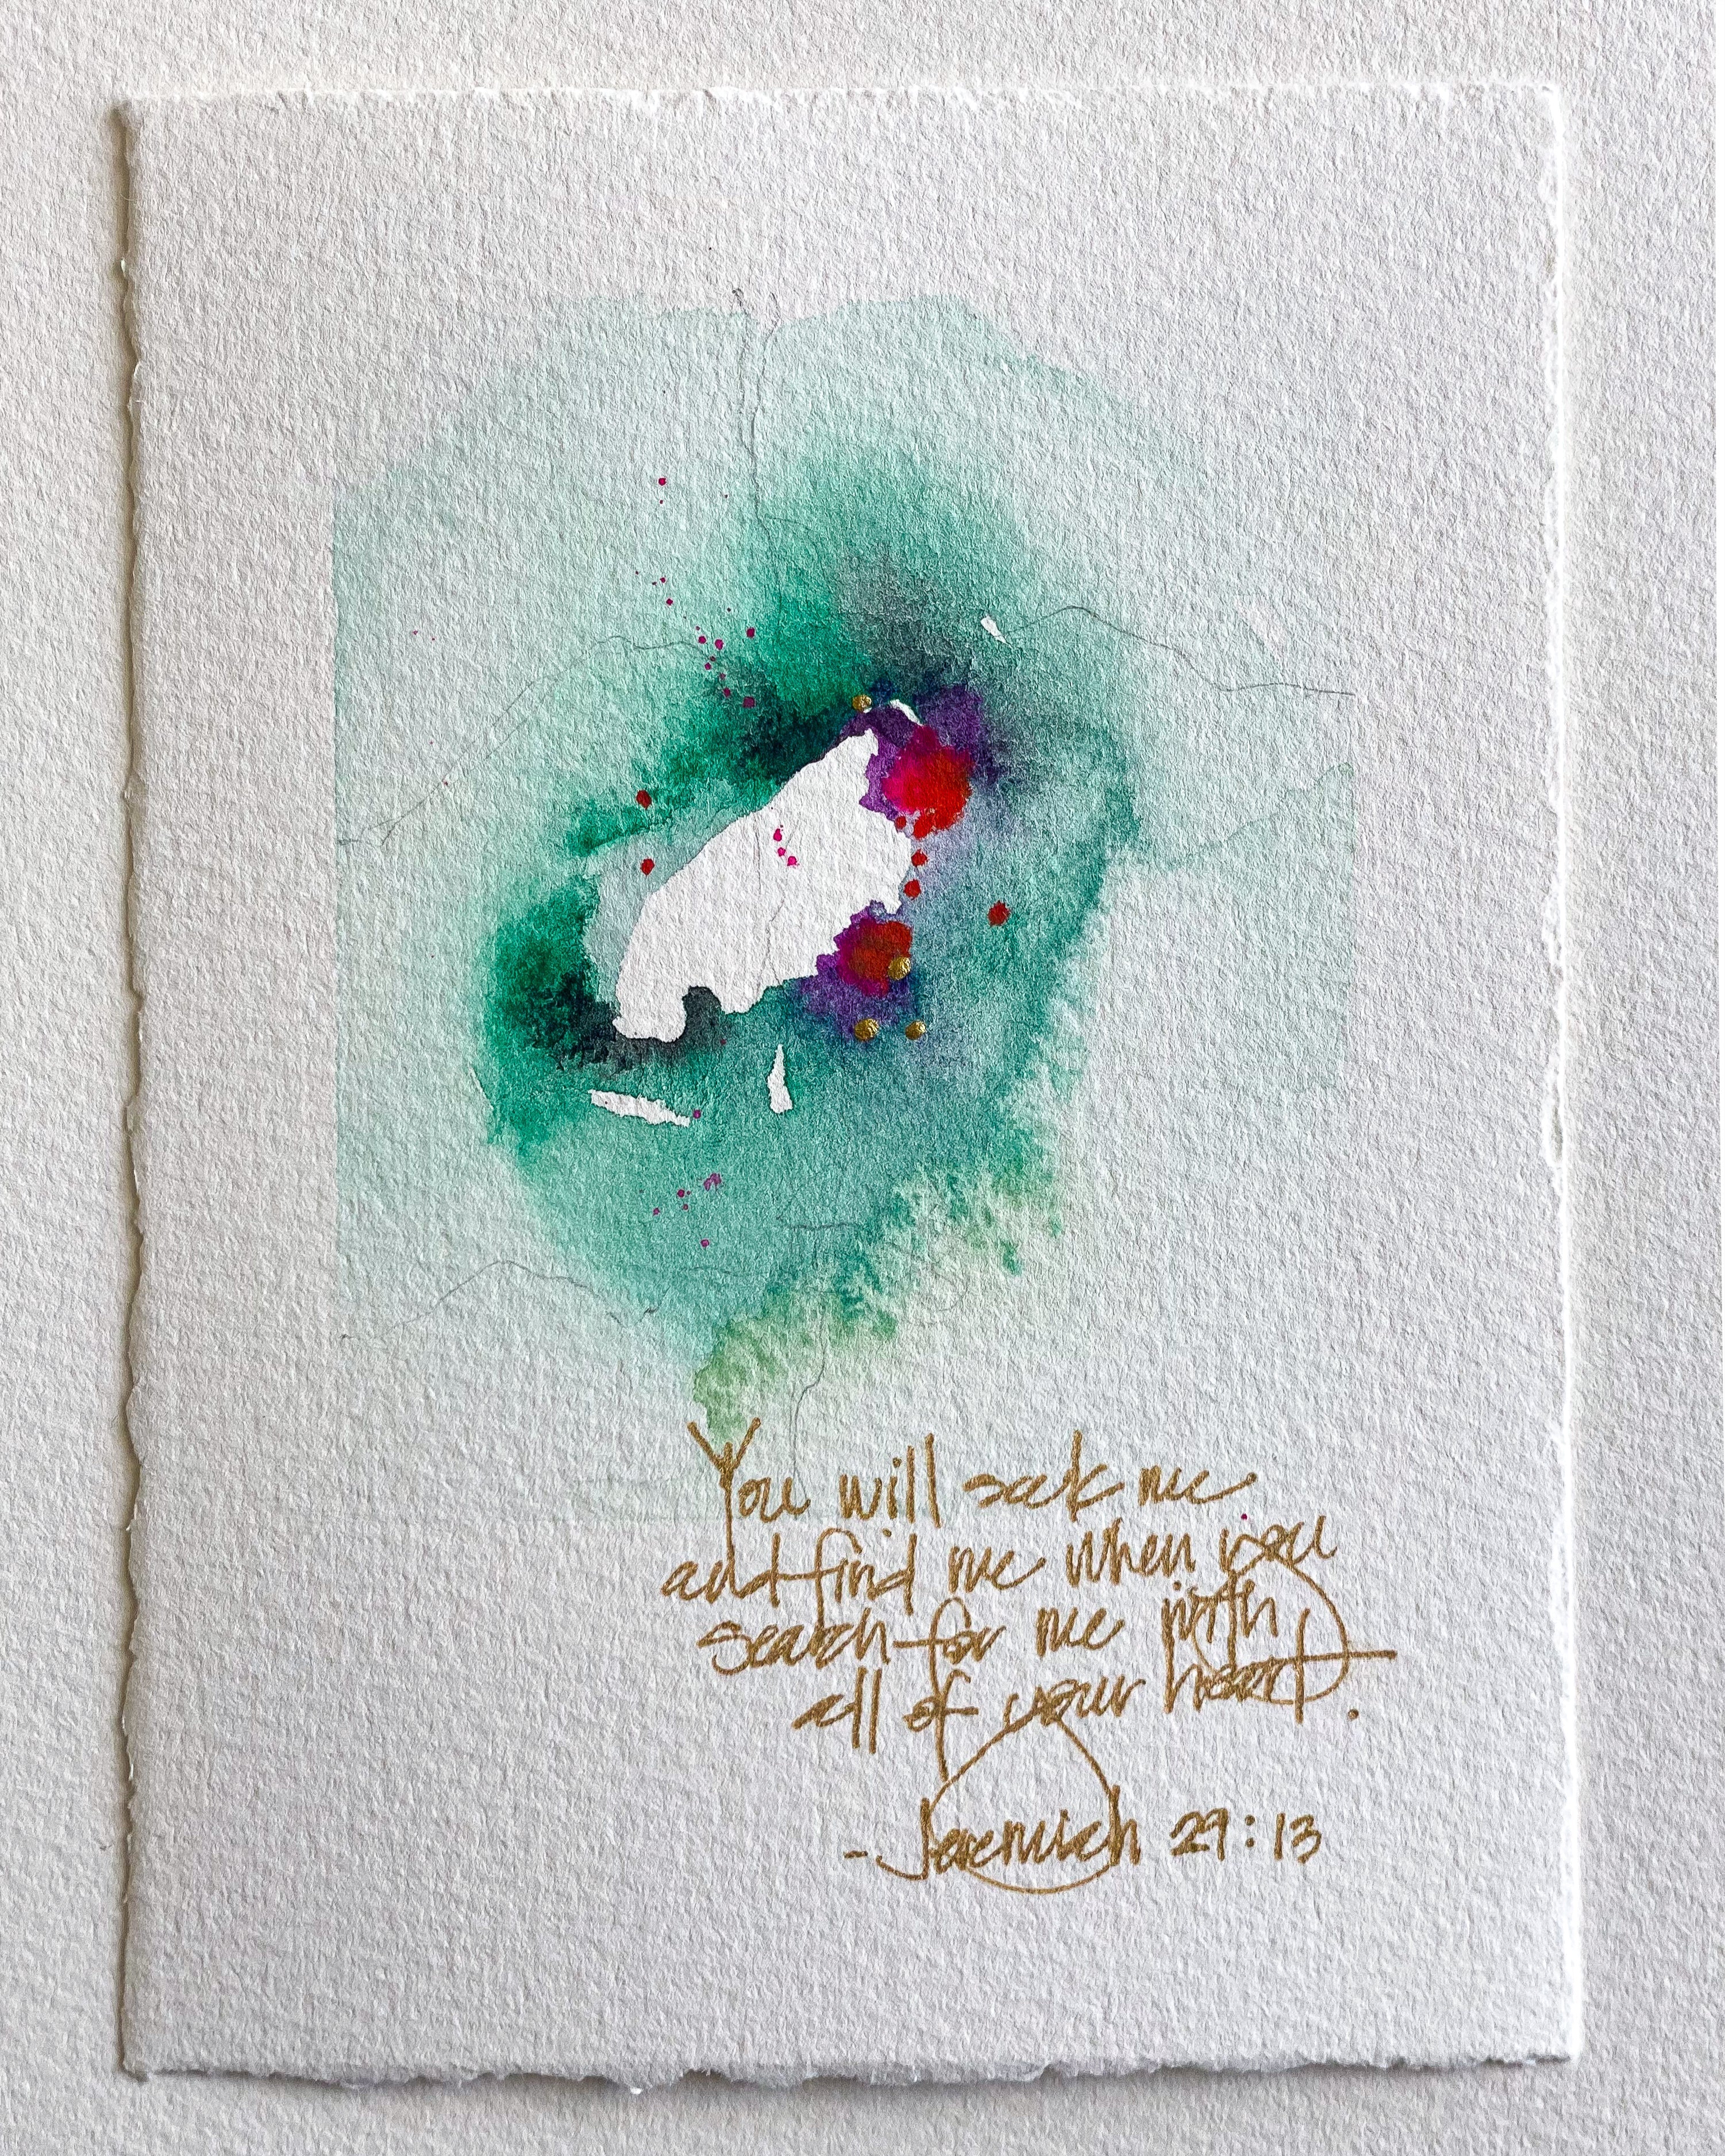 You will seek me
and find me when you
search for me with
all of your heart.
- Jeremiah 29:13